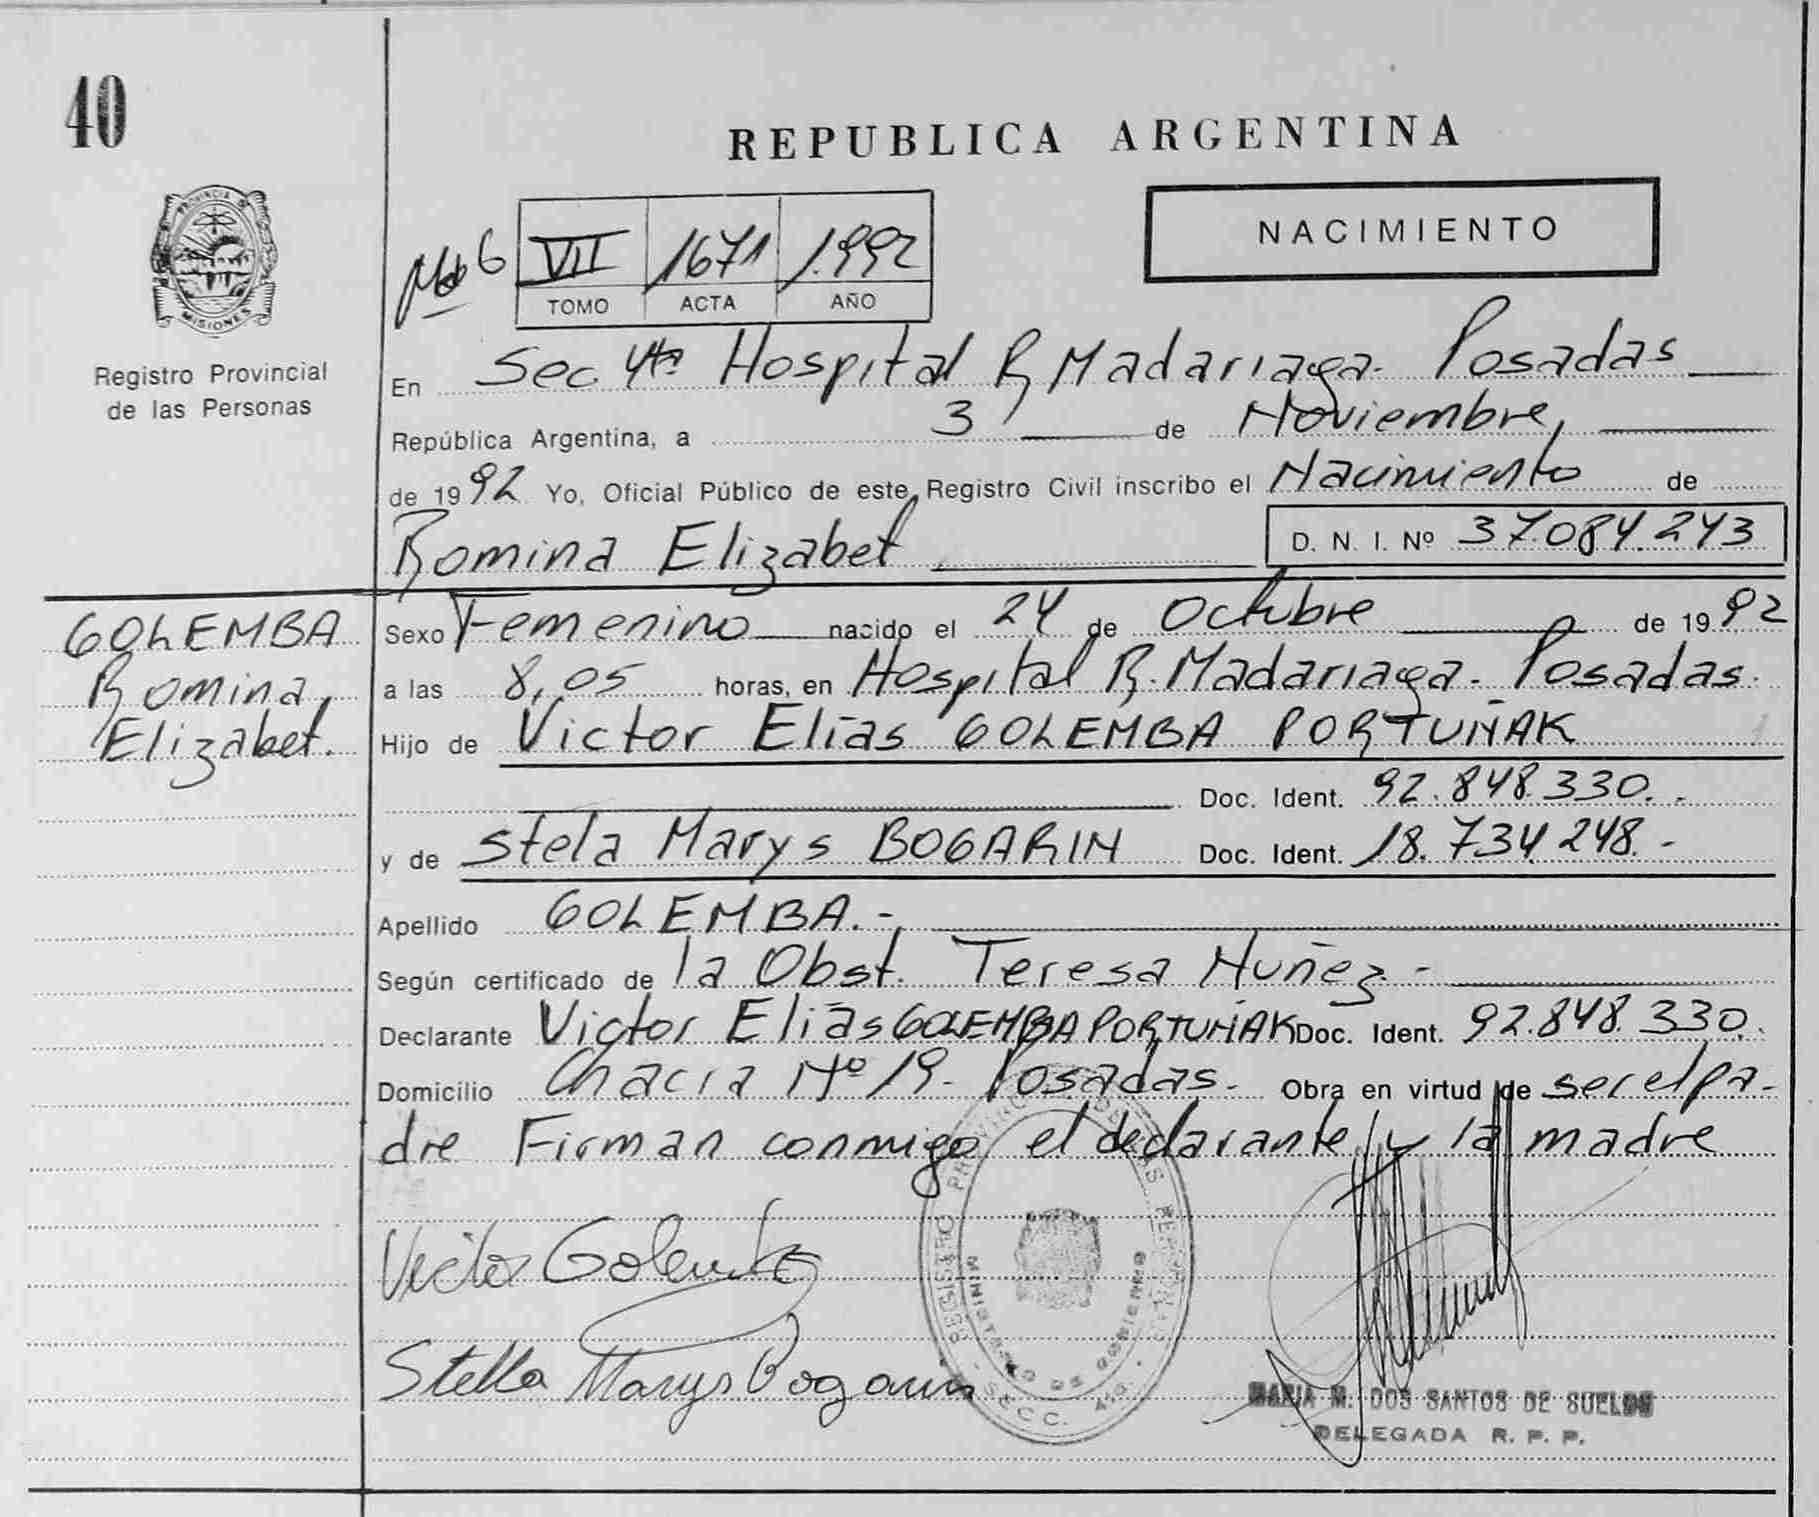 40
REPUBLICA ARGENTINA
NACIMIENTO
PROVINCIA DE
MISIONES
Registro Provincial
de las Personas
6 VII 1671 1.992
TOMO ACTA AÑO
En Sec 4ta Hospital R Madariaga. Posadas
República Argentina, a 3 de Noviembre,
de 1992 Yo, Oficial Público de este Registro Civil inscribo el Nacimiento de
Romina Elizabet D. N. I. Nº 37.084.243
GOLEMBA
Romina
Elizabet.
Sexo Femenino nacido el 24 de Octubre de 1992
a las 8,05 horas, en Hospital R. Madariaga. Posadas.
Hijo de Victor Elias GOLEMBA PORTUÑAK
Doc. Ident. 92.848.330.-
y de Stela Marys BOGARIN Doc. Ident. 18.734.248.-
Apellido GOLEMBA.-
Según certificado de la Obst. Teresa Nuñez.-
Declarante Victor Elias GOLEMBA PORTUÑAK Doc. Ident. 92.848.330.
Domicilio Chacra Nº 19- Posadas. Obra en virtud de ser el pa-
dre Firman conmigo el declarante y la madre
Victor Golemba
Stella Marys Bogarin
MARIA M. DOS SANTOS DE SUELDO
DELEGADA R. P. P.